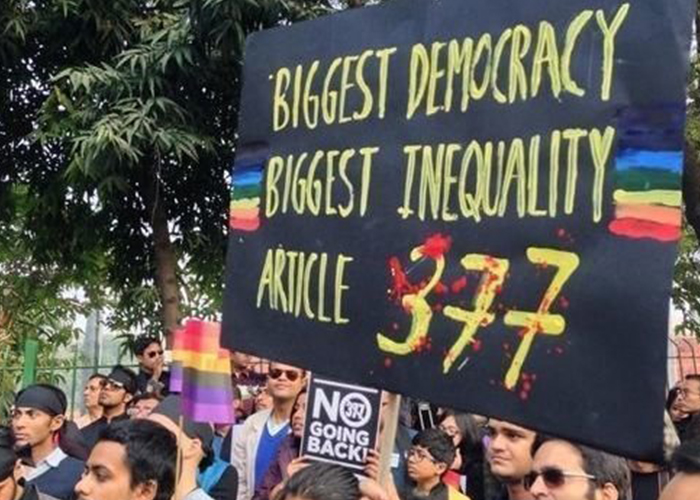 BIGGEST DEMOCRACY
BIGGEST INEQUALITY
ARTICLE 377
NO
GOING
BACK!